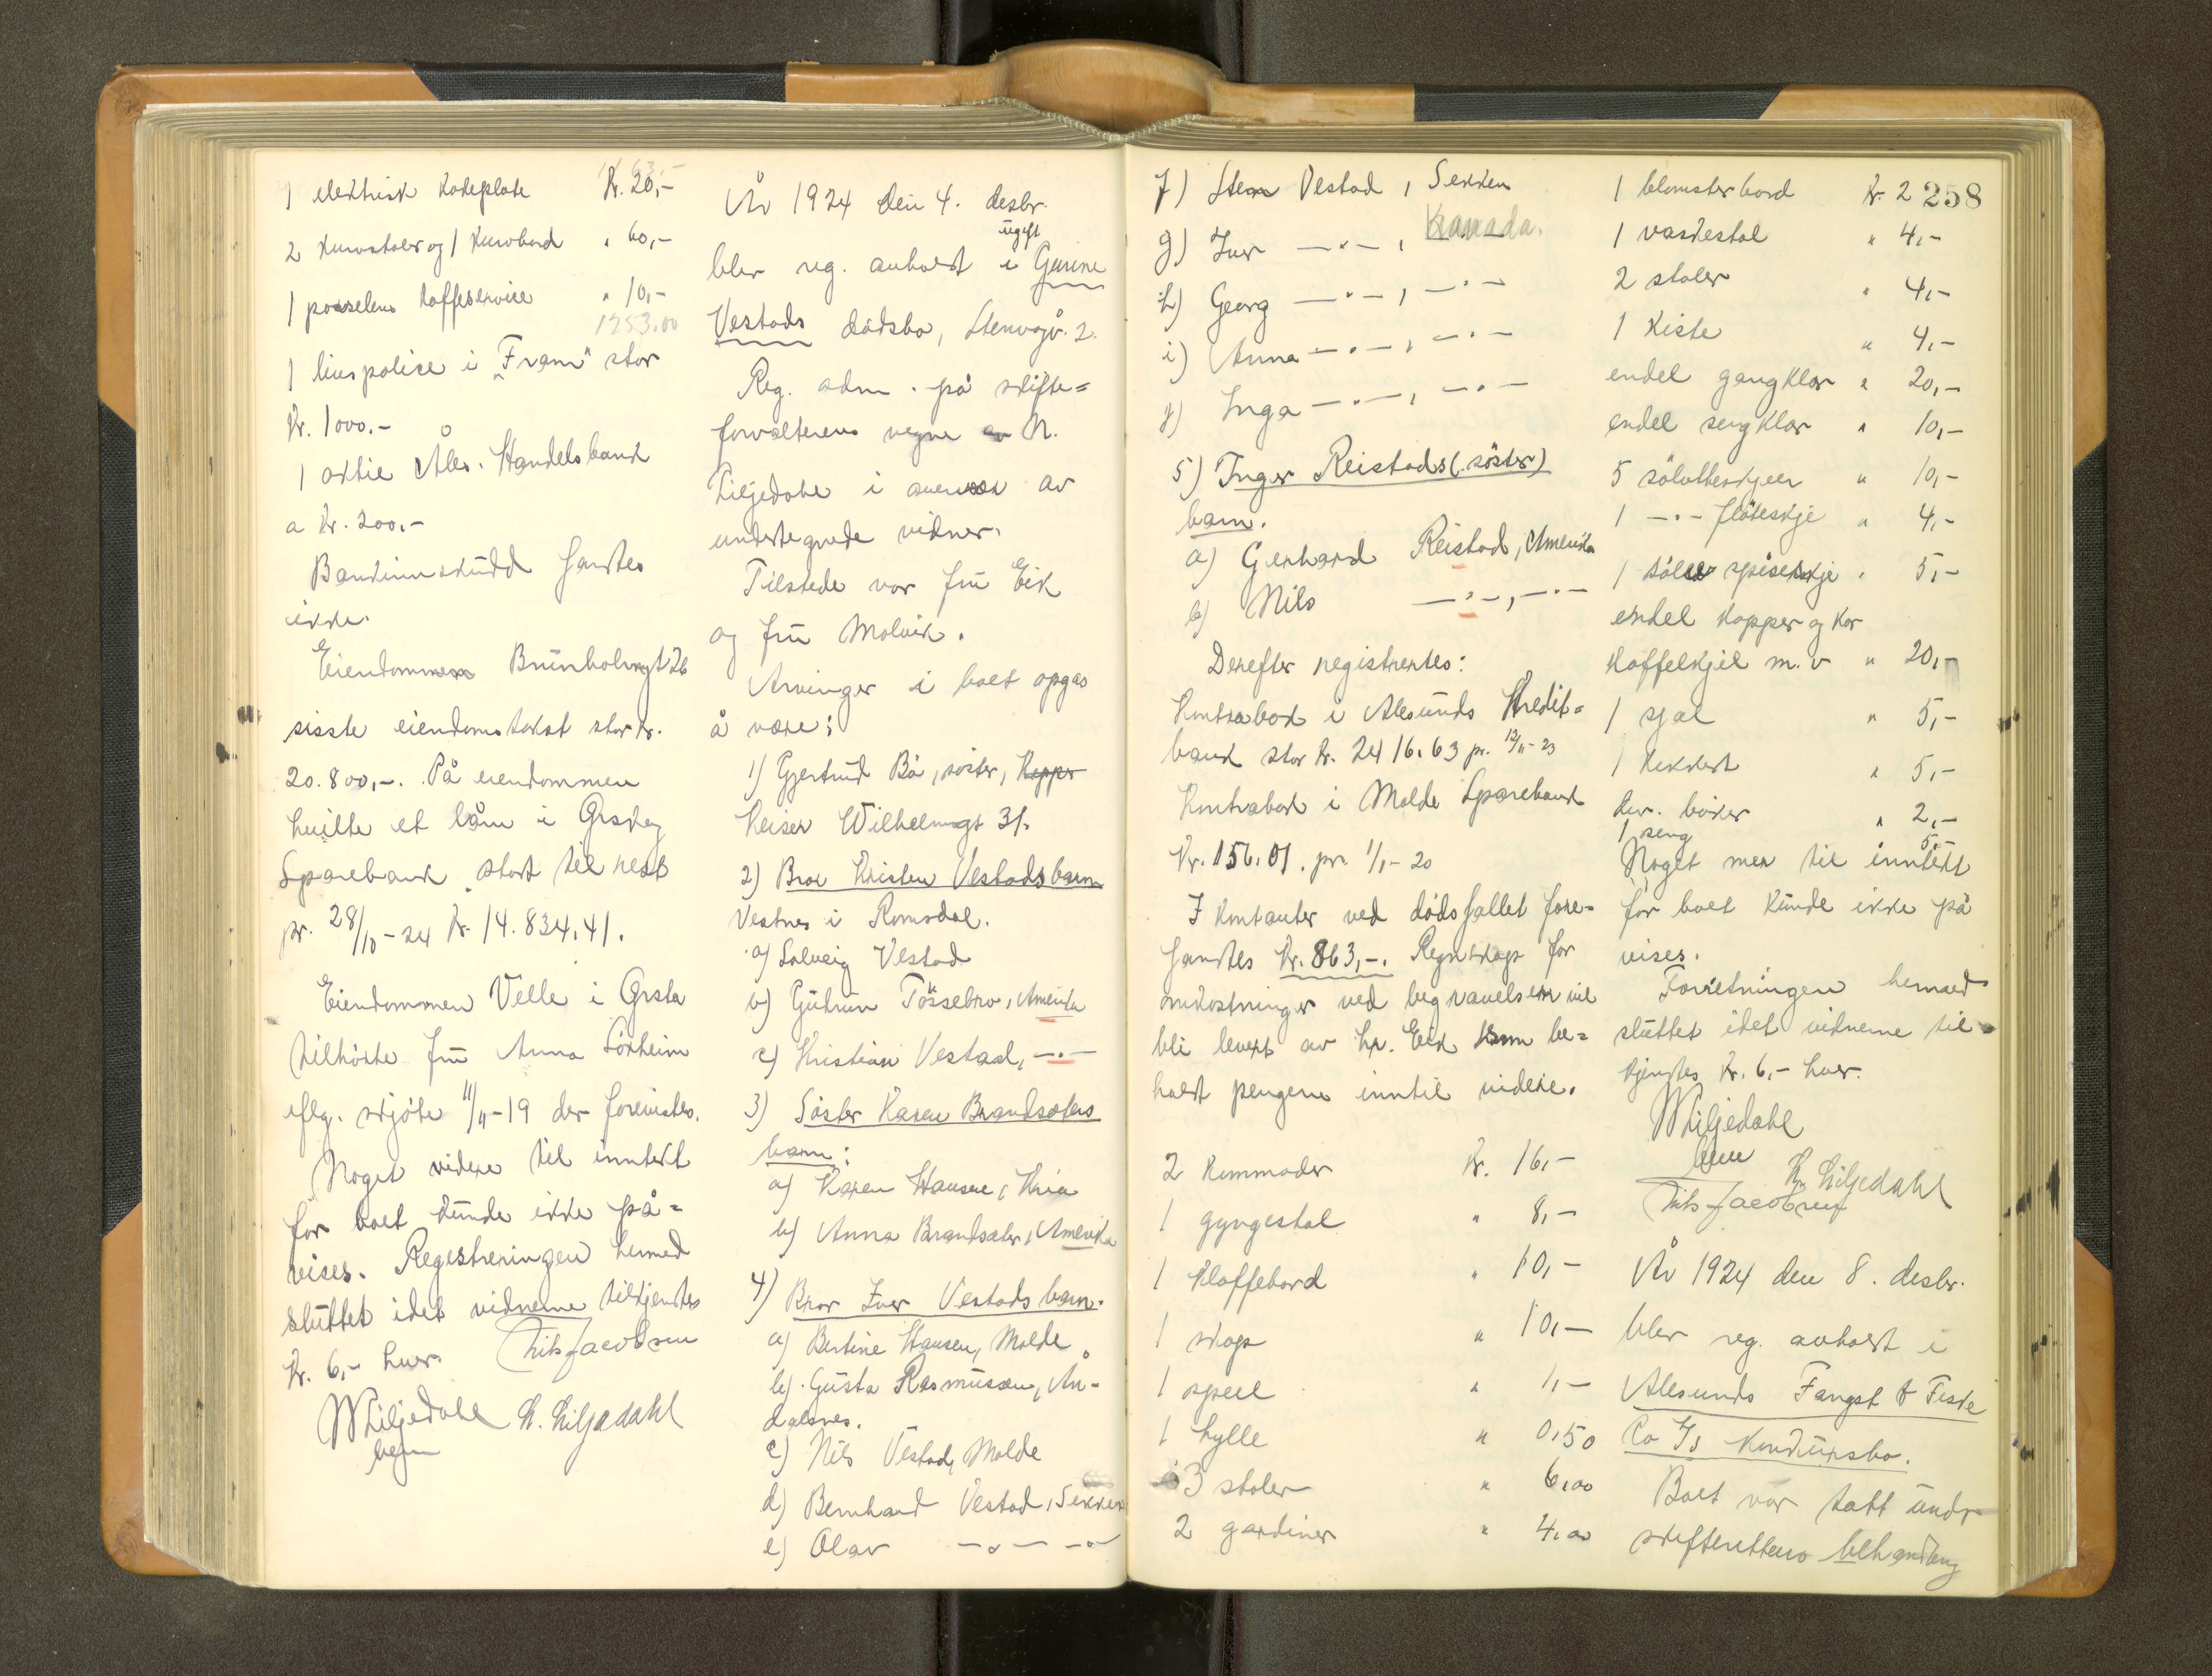 1163,-
1 elektrisk kokeplate Kr. 20,-
2 kurvstoler og 1 kurvbord " 60,-
1 porselens kaffeservice " 10,-
1253.00
1 livspolise i "Fram" stor
Kr. 1000.-
1 aktie Åles. Handelsbank
a Kr. 200,-
Bankinnskudd fandtes
ikke.
Eiendommen Brunholmgt 26
sisste eiendomstakst stor kr.
20.800,-. På eiendommen
hvilte et lån i Ørskog
Sparebank stort til rest
pr. 28/10-24 Kr. 14.834,41.
Eiendommen Velle i Ørsta
tilhörte fru Anna
iflg. skjöte 11/11-19 der forevistes.
Noget videre til inntekt
for boet kunde ikke på=
vises. Registreringen hermed
sluttet idet vidnerne tilkjentes
Kr. 6,- hver. Nils Jacobsen
W Liljedahl H. Liljedahl
bem
År 1924 den 4. desbr.
ugift
blev reg. avholdt i Gurine
Vestads dödsbo, Stenvågv. 2.
Reg. adm. på skifte=
forvalterens vegne av N.
Liljedahl i overvær av
undertegnede vidner.
Tilstede var fru Eik
og fru Malvik.
Arvinger i boet opgas
å være:
1) Gjertrud Bö, söster,
Keiser Wilhelmsgt 31.
2) Bror Kristen Vestads barn
Vestnes i Romsdal.
a) Solveig Vestad
b) Gudrun Tössebro, Amerika
c) Kristian Vestad, -"-
3) Söster Karen Brandsæters
barn:
a) Karen Hansen, Kria
b) Anna Brandsæter, Amerika
4) Bror Iver Vestads barn.
a) Bertine Hansen, Molde
b) Gusta Rasmussen, Ån-
dalsnes.
c) Nils Vestad, Molde
d) Bernhard Vestad, Sekken
e) Olav -"- -"-
f) Sten Vestad, Sekken
g) Iver -"-, Kanada.
h) Georg -"-, -"-
i) Anna -"-, -"-
j) Inga -"-, -"-
5) Inger Reistads (söster)
barn.
a) Gerhard Reistad, Amerika
b) Nils -"-, -"-
Derefter registrertes:
Kontrabok i Alesunds Kredit=
bank stor kr. 2416.63 pr. 12/11-23
Kontrabok i Molde Sparebank
Kr. 156.01. pr. 1/1-20
I kontanter ved dödsfallet fore=
fandtes Kr. 863,-. Regnskap for
omkostninger ved begravelsen vil
bli levert av hr. Eik som be=
holdt pengene inntil videre.
2 kummoder Kr. 16,-
1 gyngestol " 8,-
1 klaffebord " 10,-
1 skap " 10,-
1 speil " 1,-
1 hylle " 0,50
3 stoler " 6,00
2 gardiner " 4,00
258
1 blomsterbord Kr. 2
1 vaskestol " 4,-
2 stoler " 4,-
1 kiste " 4,-
endel gangklær " 20,-
endel sengklær " 10,-
5 sölvtheskjeer " 10,-
1 -"- flöteskje " 4,-
1 sölv spiseskje " 5,-
endel kopper og kar
kaffekjel m.v " 20,-
1 sjal " 5,-
1 kikkert " 5,-
div. böker " 2,-
1 seng 5,-
Noget mer til inntekt
for boet kunde ikke på
vises.
Forretningen hermed
sluttet idet vidnerne til
kjendtes Kr. 6,- hver.
W Liljedahl
bem
H. Liljedahl
Nils Jacobsen
År 1924 den 8. desbr.
blev reg. avholdt i
Alesunds Fangst & Fiske
Co A/S konkursbo.
Boet var tatt under
skifterettens behandling